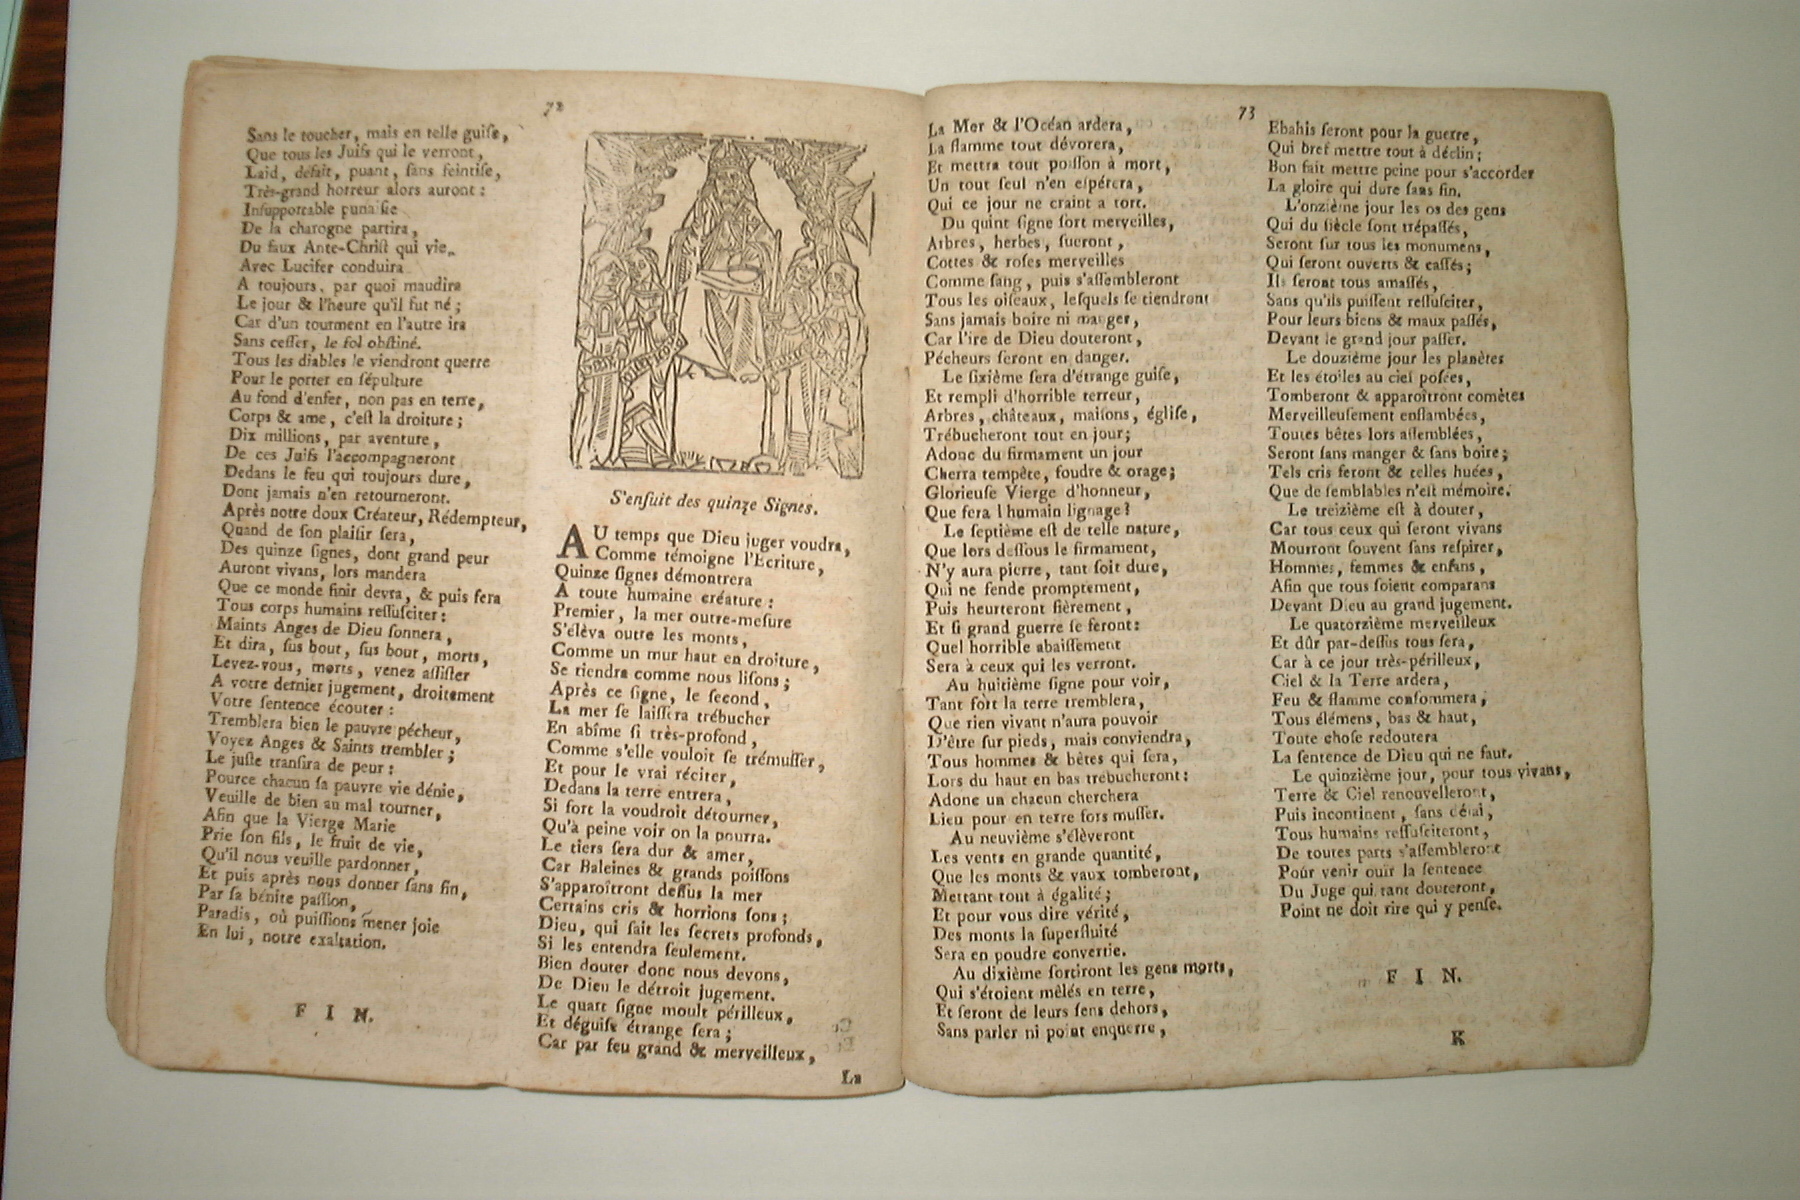 72
Sans le toucher, mais en telle guiſe,
Que tous les Juifs qui le verront,
Laid, défait, puant, ſans feintiſe,
Très-grand horreur alors auront :
Inſupportable punaiſie
De la charogne partira,
Du faux Ante-Chriſt qui vie
Avec Lucifer conduira
A toujours, par quoi maudira
Le jour & l'heure qu'il fut né ;
Car d'un tourment en l'autre ira
Sans ceſſer, le fol obſtiné.
Tous les diables le viendront querre
Pour le porter en ſépulture
Au fond d'enfer, non pas en terre,
Corps & ame, c'eſt la droiture ;
Dix millions, par aventure,
De ces Juifs l'accompagneront
Dedans le feu qui toujours dure,
Dont jamais n'en retourneront.
Après notre doux Créateur, Rédempteur,
Quand de ſon plaiſir ſera,
Des quinze ſignes, dont grand peur
Auront vivans, lors mandera
Que ce monde finir devra, & puis ſera
Tous corps humains reſſuſciter :
Maints Anges de Dieu ſonnera,
Et dira, ſus bout, ſus bout, morts,
Levez-vous, morts, venez aſſiſter
A votre dernier jugement, droitement
Votre ſentence écouter :
Tremblera bien le pauvre pécheur,
Voyez Anges & Saints trembler ;
Le juſte tranſira de peur :
Pource chacun ſa pauvre vie dénie,
Veuille de bien au mal tourner,
Afin que la Vierge Marie
Prie ſon fils, le fruit de vie,
Qu'il nous veuille pardonner,
Et puis après nous donner ſans fin,
Par ſa bénite paſſion,
Paradis, où puiſſions mener joie
En lui, notre exaltation.
F I N.
S'enſuit des quinze Signes.
AU temps que Dieu juger voudra,
Comme témoigne l'Ecriture,
Quinze ſignes démontrera
A toute humaine créature :
Premier, la mer outre-meſure
S'élèva outre les monts,
Comme un mur haut en droiture,
Se tiendra comme nous liſons ;
Après ce ſigne, le ſecond,
La mer ſe laiſſera trébucher
En abîme ſi très-profond,
Comme s'elle vouloit ſe trémuſſer,
Et pour le vrai réciter,
Dedans la terre entrera,
Si fort la voudroit détourner,
Qu'à peine voir on la pourra.
Le tiers ſera dur & amer,
Car Baleines & grands poiſſons
S'apparoîtront deſſus la mer
Certains cris & horrions ſons ;
Dieu, qui ſait les ſecrets profonds,
Si les entendra ſeulement.
Bien douter donc nous devons,
De Dieu le détroit jugement.
Le quart ſigne moult périlleux,
Et déguiſe étrange ſera ;
Car par feu grand & merveilleux,
La
73
La Mer & l'Océan ardera,
La flamme tout dévorera,
Et mettra tout poiſſon à mort,
Un tout ſeul n'en eſpérera,
Qui ce jour ne craint a tort.
Du quint ſigne ſort merveilles,
Arbres, herbes, ſueront,
Cottes & roſes merveilles
Comme ſang, puis s'aſſembleront
Tous les oiſeaux, leſquels ſe tiendront
Sans jamais boire ni manger,
Car l'ire de Dieu douteront,
Pécheurs ſeront en danger.
Le ſixième ſera d'étrange guiſe,
Et rempli d'horrible terreur,
Arbres, châteaux, maiſons, égliſe,
Trébucheront tout en jour;
Adonc du firmament un jour
Cherra tempête, foudre & orage;
Glorieuſe Vierge d'honneur,
Que fera l'humain lignage?
Le ſeptième eſt de telle nature,
Que lors deſſous le firmament,
N'y aura pierre, tant ſoit dure,
Qui ne fende promptement,
Puis heurteront fièrement,
Et ſi grand guerre ſe feront:
Quel horrible abaiſſement
Sera à ceux qui les verront.
Au huitième ſigne pour voir,
Tant fòrt la terre tremblera,
Que rien vivant n'aura pouvoir
D'être ſur pieds, mais conviendra,
Tous hommes & bêtes qui ſera,
Lors du haut en bas trébucheront:
Adonc un chacun cherchera
Lieu pour en terre ſors muſſer.
Au neuvième s'élèveront
Les vents en grande quantité,
Que les monts & vaux tomberont,
Mettant tout à égalité;
Et pour vous dire vérité,
Des monts la ſuperfluité
Sera en poudre convertie.
Au dixième ſortiront les gens morts,
Qui s'étoient mêlés en terre,
Et ſeront de leurs ſens dehors,
Sans parler ni point enquerre,
Ebahis ſeront pour la guerre,
Qui bref mettre tout à déclin;
Bon fait mettre peine pour s'accorder
La gloire qui dure ſans fin.
L'onzième jour les os des gens
Qui du ſiècle ſont trépaſſés,
Seront ſur tous les monumens,
Qui ſeront ouverts & caſſés;
Ils ſeront tous amaſſés,
Sans qu'ils puiſſent reſſuſciter,
Pour leurs biens & maux paſſés,
Devant le grand jour paſſer.
Le douzième jour les planètes
Et les étoiles au ciel poſées,
Tomberont & apparoîtront comètes
Merveilleuſement enflambées,
Toutes bêtes lors aſſemblées,
Seront ſans manger & ſans boire;
Tels cris feront & telles huées,
Que de ſemblables n'eſt mémoire.
Le treizième eſt à douter,
Car tous ceux qui ſeront vivans
Mourront ſouvent ſans reſpirer,
Hommes, femmes & enfans,
Afin que tous ſoient comparans
Devant Dieu au grand jugement.
Le quatorzième merveilleux
Et dûr par-deſſus tous ſera,
Car à ce jour très-périlleux,
Ciel & la Terre ardera,
Feu & flamme conſommera,
Tous élémens, bas & haut,
Toute choſe redoutera
La ſentence de Dieu qui ne faut.
Le quinzième jour, pour tous vivans,
Terre & Ciel renouvelleront,
Puis incontinent, ſans délai,
Tous humains reſſuſciteront,
De toutes parts s'aſſembleront
Poùr venir ouir la ſentence
Du Juge qui tant douteront,
Point ne doit rire qui y penſe.
F I N.
K